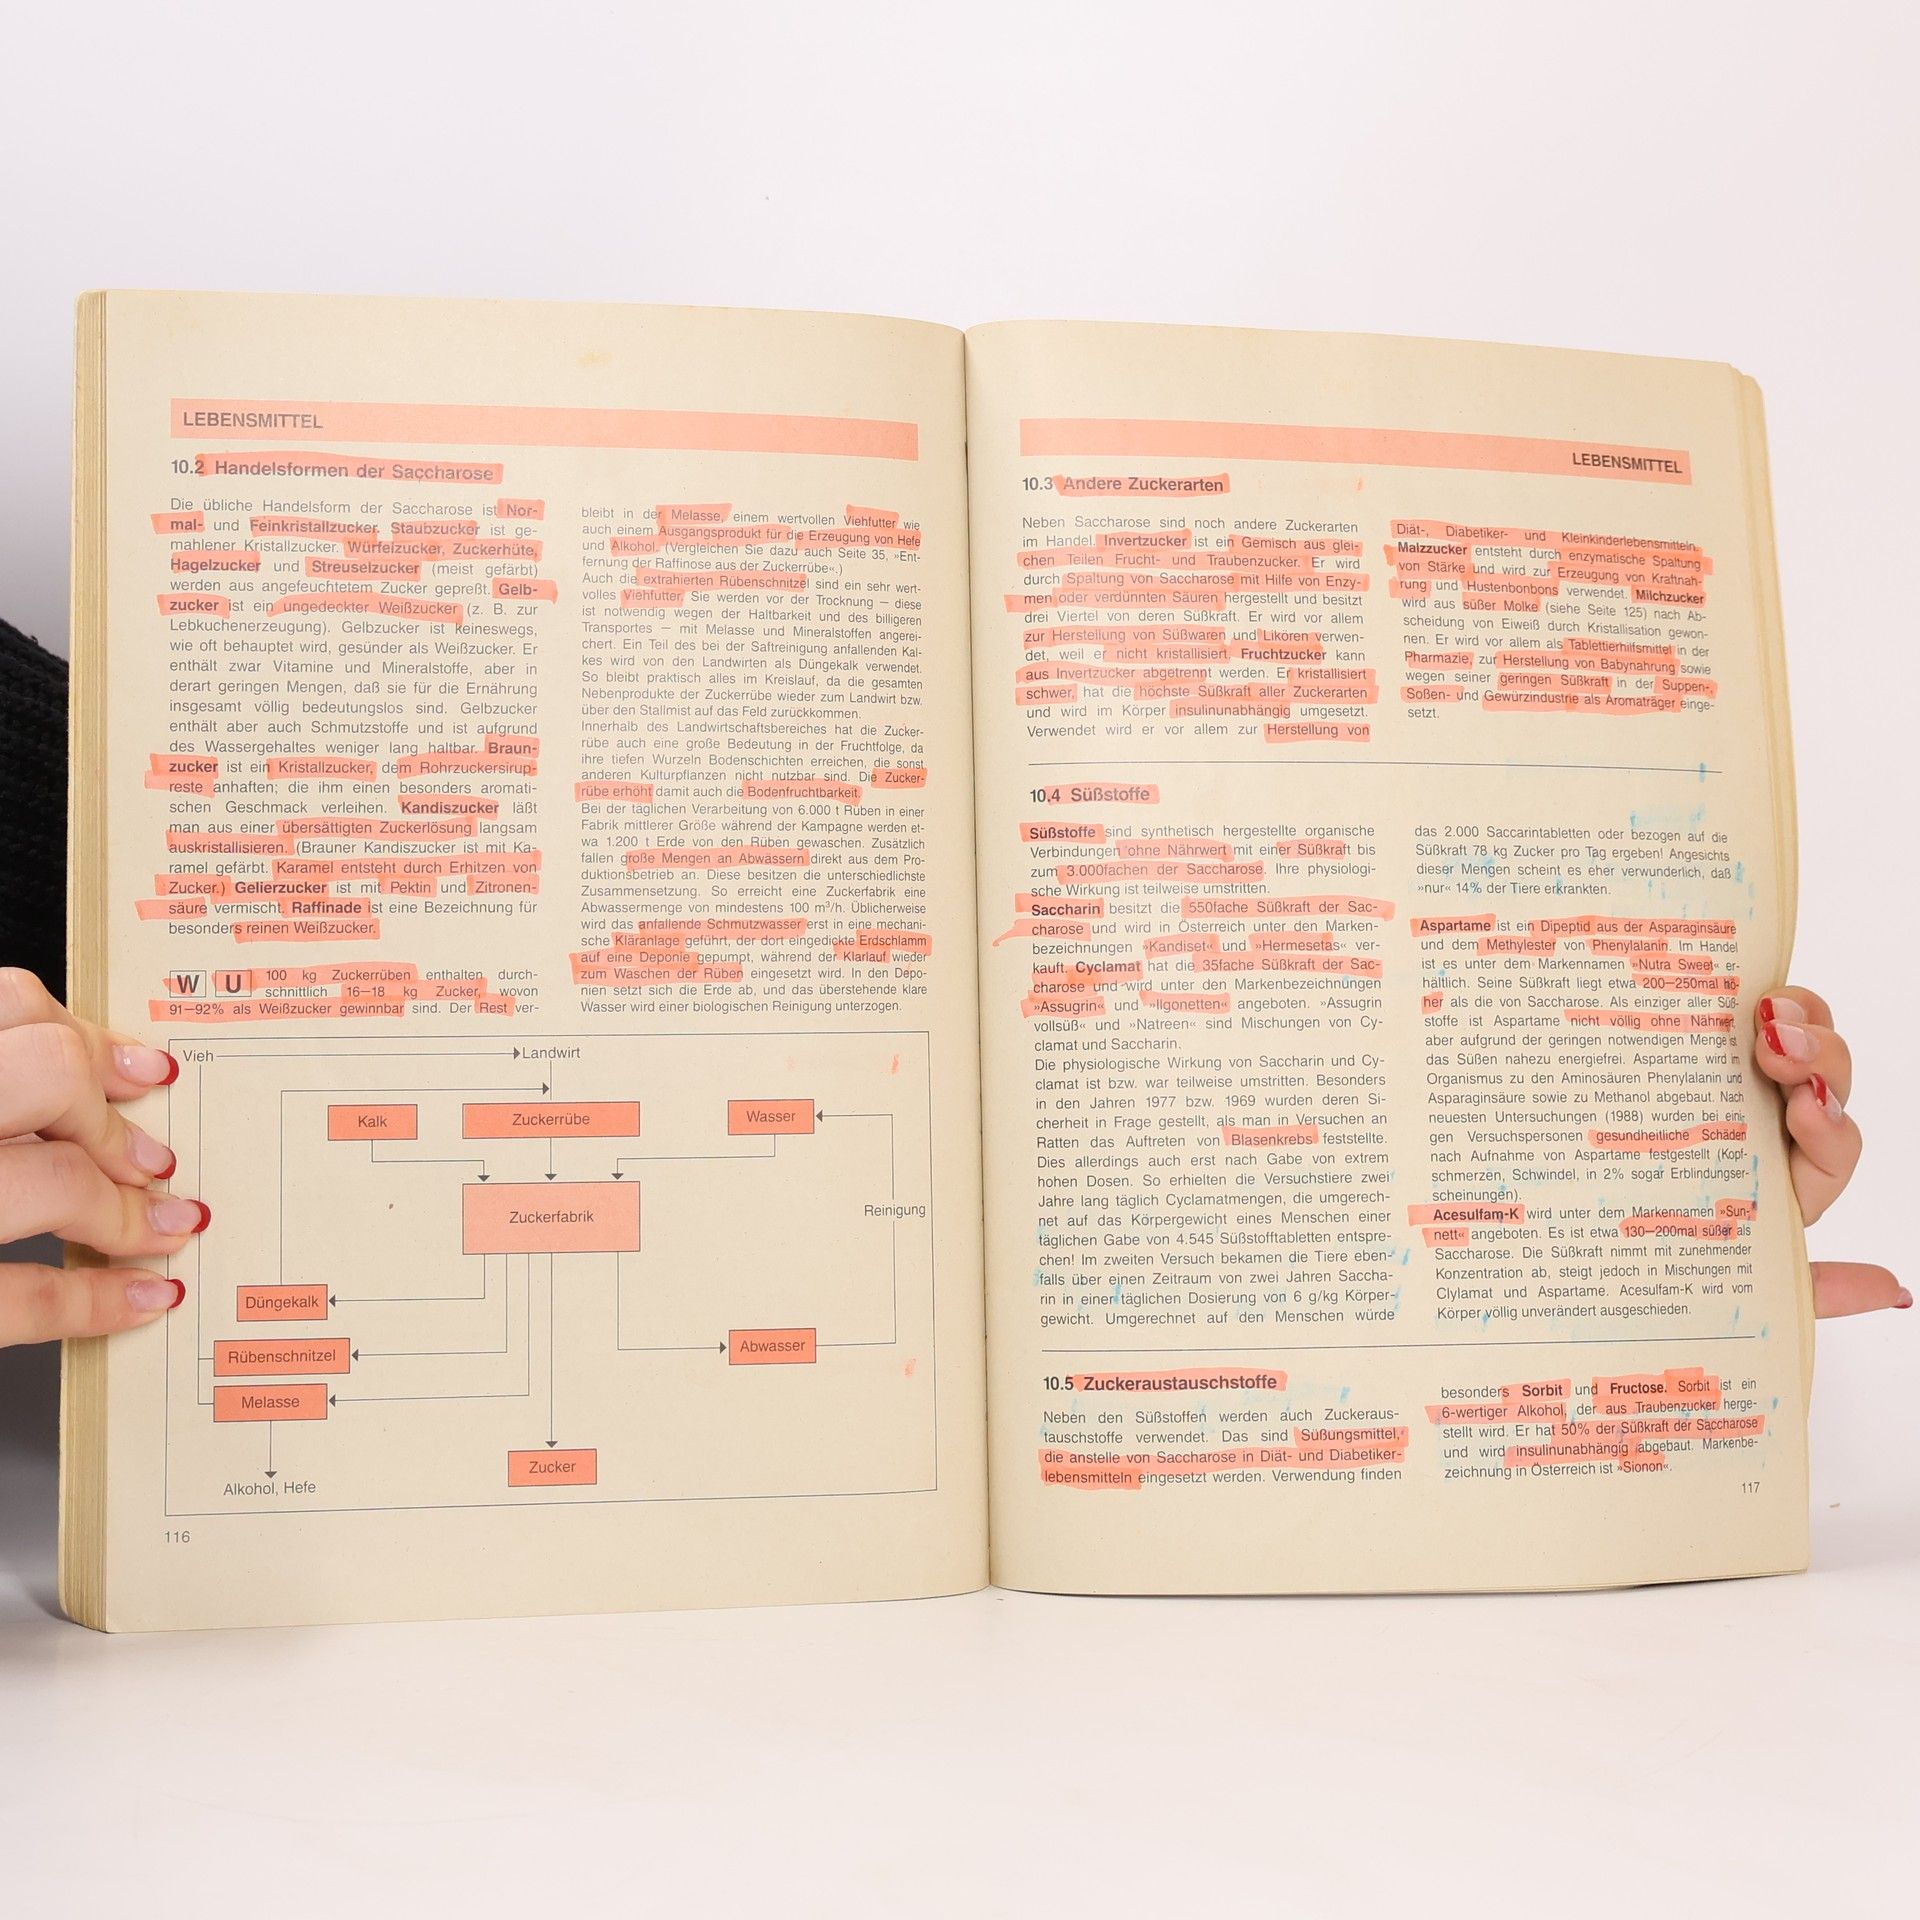 LEBENSMITTEL
10.2 Handelsformen der Saccharose
Die übliche Handelsform der Saccharose ist Nor-
mal- und Feinkristallzucker. Staubzucker ist ge-
mahlener Kristallzucker. Würfelzucker, Zuckerhüte,
Hagelzucker und Streuselzucker (meist gefärbt)
werden aus angefeuchtetem Zucker gepreßt. Gelb-
zucker ist ein ungedeckter Weißzucker (z. B. zur
Lebkuchenerzeugung). Gelbzucker ist keineswegs,
wie oft behauptet wird, gesünder als Weißzucker. Er
enthält zwar Vitamine und Mineralstoffe, aber in
derart geringen Mengen, daß sie für die Ernährung
insgesamt völlig bedeutungslos sind. Gelbzucker
enthält aber auch Schmutzstoffe und ist aufgrund
des Wassergehaltes weniger lang haltbar. Braun-
zucker ist ein Kristallzucker, dem Rohrzuckersirup-
reste anhaften; die ihm einen besonders aromati-
schen Geschmack verleihen. Kandiszucker läßt
man aus einer übersättigten Zuckerlösung langsam
auskristallisieren. (Brauner Kandiszucker ist mit Ka-
ramel gefärbt. Karamel entsteht durch Erhitzen von
Zucker.) Gelierzucker ist mit Pektin und Zitronen-
säure vermischt. Raffinade ist eine Bezeichnung für
besonders reinen Weißzucker.
W U 100 kg Zuckerrüben enthalten durch-
schnittlich 16–18 kg Zucker, wovon
91–92% als Weißzucker gewinnbar sind. Der Rest ver-
bleibt in der Melasse, einem wertvollen Viehfutter wie
auch einem Ausgangsprodukt für die Erzeugung von Hefe
und Alkohol. (Vergleichen Sie dazu auch Seite 35, »Ent-
fernung der Raffinose aus der Zuckerrübe«.)
Auch die extrahierten Rübenschnitzel sind ein sehr wert-
volles Viehfutter. Sie werden vor der Trocknung – diese
ist notwendig wegen der Haltbarkeit und des billigeren
Transportes – mit Melasse und Mineralstoffen angerei-
chert. Ein Teil des bei der Saftreinigung anfallenden Kal-
kes wird von den Landwirten als Düngekalk verwendet.
So bleibt praktisch alles im Kreislauf, da die gesamten
Nebenprodukte der Zuckerrübe wieder zum Landwirt bzw.
über den Stallmist auf das Feld zurückkommen.
Innerhalb des Landwirtschaftsbereiches hat die Zucker-
rübe auch eine große Bedeutung in der Fruchtfolge, da
ihre tiefen Wurzeln Bodenschichten erreichen, die sonst
anderen Kulturpflanzen nicht nutzbar sind. Die Zucker-
rübe erhöht damit auch die Bodenfruchtbarkeit.
Bei der täglichen Verarbeitung von 6.000 t Rüben in einer
Fabrik mittlerer Größe während der Kampagne werden et-
wa 1.200 t Erde von den Rüben gewaschen. Zusätzlich
fallen große Mengen an Abwässern direkt aus dem Pro-
duktionsbetrieb an. Diese besitzen die unterschiedlichste
Zusammensetzung. So erreicht eine Zuckerfabrik eine
Abwassermenge von mindestens 100 m³/h. Üblicherweise
wird das anfallende Schmutzwasser erst in eine mechani-
sche Kläranlage geführt, der dort eingedickte Erdschlamm
auf eine Deponie gepumpt, während der Klarlauf wieder
zum Waschen der Rüben eingesetzt wird. In den Depo-
nien setzt sich die Erde ab, und das überstehende klare
Wasser wird einer biologischen Reinigung unterzogen.
Vieh
Landwirt
Kalk
Zuckerrübe
Wasser
Zuckerfabrik
Reinigung
Düngekalk
Rübenschnitzel
Abwasser
Melasse
Zucker
Alkohol, Hefe
116
LEBENSMITTEL
10.3 Andere Zuckerarten
Neben Saccharose sind noch andere Zuckerarten
im Handel. Invertzucker ist ein Gemisch aus glei-
chen Teilen Frucht- und Traubenzucker. Er wird
durch Spaltung von Saccharose mit Hilfe von Enzy-
men oder verdünnten Säuren hergestellt und besitzt
drei Viertel von deren Süßkraft. Er wird vor allem
zur Herstellung von Süßwaren und Likören verwen-
det, weil er nicht kristallisiert. Fruchtzucker kann
aus Invertzucker abgetrennt werden. Er kristallisiert
schwer, hat die höchste Süßkraft aller Zuckerarten
und wird im Körper insulinunabhängig umgesetzt.
Verwendet wird er vor allem zur Herstellung von
Diät-, Diabetiker- und Kleinkinderlebensmitteln.
Malzzucker entsteht durch enzymatische Spaltung
von Stärke und wird zur Erzeugung von Kraftnah-
rung und Hustenbonbons verwendet. Milchzucker
wird aus süßer Molke (siehe Seite 125) nach Ab-
scheidung von Eiweiß durch Kristallisation gewon-
nen. Er wird vor allem als Tablettierhilfsmittel in der
Pharmazie, zur Herstellung von Babynahrung sowie
wegen seiner geringen Süßkraft in der Suppen-,
Soßen- und Gewürzindustrie als Aromaträger einge-
setzt.
10.4 Süßstoffe
Süßstoffe sind synthetisch hergestellte organische
Verbindungen ohne Nährwert mit einer Süßkraft bis
zum 3.000fachen der Saccharose. Ihre physiologi-
sche Wirkung ist teilweise umstritten.
Saccharin besitzt die 550fache Süßkraft der Sac-
charose und wird in Österreich unter den Marken-
bezeichnungen »Kandiset« und »Hermesetas« ver-
kauft. Cyclamat hat die 35fache Süßkraft der Sac-
charose und wird unter den Markenbezeichnungen
»Assugrin« und »Ilgonetten« angeboten. »Assugrin
vollsüß« und »Natreen« sind Mischungen von Cy-
clamat und Saccharin.
Die physiologische Wirkung von Saccharin und Cy-
clamat ist bzw. war teilweise umstritten. Besonders
in den Jahren 1977 bzw. 1969 wurden deren Si-
cherheit in Frage gestellt, als man in Versuchen an
Ratten das Auftreten von Blasenkrebs feststellte.
Dies allerdings auch erst nach Gabe von extrem
hohen Dosen. So erhielten die Versuchstiere zwei
Jahre lang täglich Cyclamatmengen, die umgerech-
net auf das Körpergewicht eines Menschen einer
täglichen Gabe von 4.545 Süßstofftabletten entspre-
chen! Im zweiten Versuch bekamen die Tiere eben-
falls über einen Zeitraum von zwei Jahren Saccha-
rin in einer täglichen Dosierung von 6 g/kg Körper-
gewicht. Umgerechnet auf den Menschen würde
das 2.000 Saccarintabletten oder bezogen auf die
Süßkraft 78 kg Zucker pro Tag ergeben! Angesichts
dieser Mengen scheint es eher verwunderlich, daß
»nur« 14% der Tiere erkrankten.
Aspartame ist ein Dipeptid aus der Asparaginsäure
und dem Methylester von Phenylalanin. Im Handel
ist es unter dem Markennamen »Nutra Sweet« er-
hältlich. Seine Süßkraft liegt etwa 200–250mal hö-
her als die von Saccharose. Als einziger aller Süß-
stoffe ist Aspartame nicht völlig ohne Nährwert,
aber aufgrund der geringen notwendigen Menge ist
das Süßen nahezu energiefrei. Aspartame wird im
Organismus zu den Aminosäuren Phenylalanin und
Asparaginsäure sowie zu Methanol abgebaut. Nach
neuesten Untersuchungen (1988) wurden bei eini-
gen Versuchspersonen gesundheitliche Schäden
nach Aufnahme von Aspartame festgestellt (Kopf-
schmerzen, Schwindel, in 2% sogar Erblindungser-
scheinungen).
Acesulfam-K wird unter dem Markennamen »Sun-
nett« angeboten. Es ist etwa 130–200mal süßer als
Saccharose. Die Süßkraft nimmt mit zunehmender
Konzentration ab, steigt jedoch in Mischungen mit
Clylamat und Aspartame. Acesulfam-K wird vom
Körper völlig unverändert ausgeschieden.
10.5 Zuckeraustauschstoffe
Neben den Süßstoffen werden auch Zuckeraus-
tauschstoffe verwendet. Das sind Süßungsmittel,
die anstelle von Saccharose in Diät- und Diabetiker-
lebensmitteln eingesetzt werden. Verwendung finden
besonders Sorbit und Fructose. Sorbit ist ein
6-wertiger Alkohol, der aus Traubenzucker herge-
stellt wird. Er hat 50% der Süßkraft der Saccharose
und wird insulinunabhängig abgebaut. Markenbe-
zeichnung in Österreich ist »Sionon«.
117